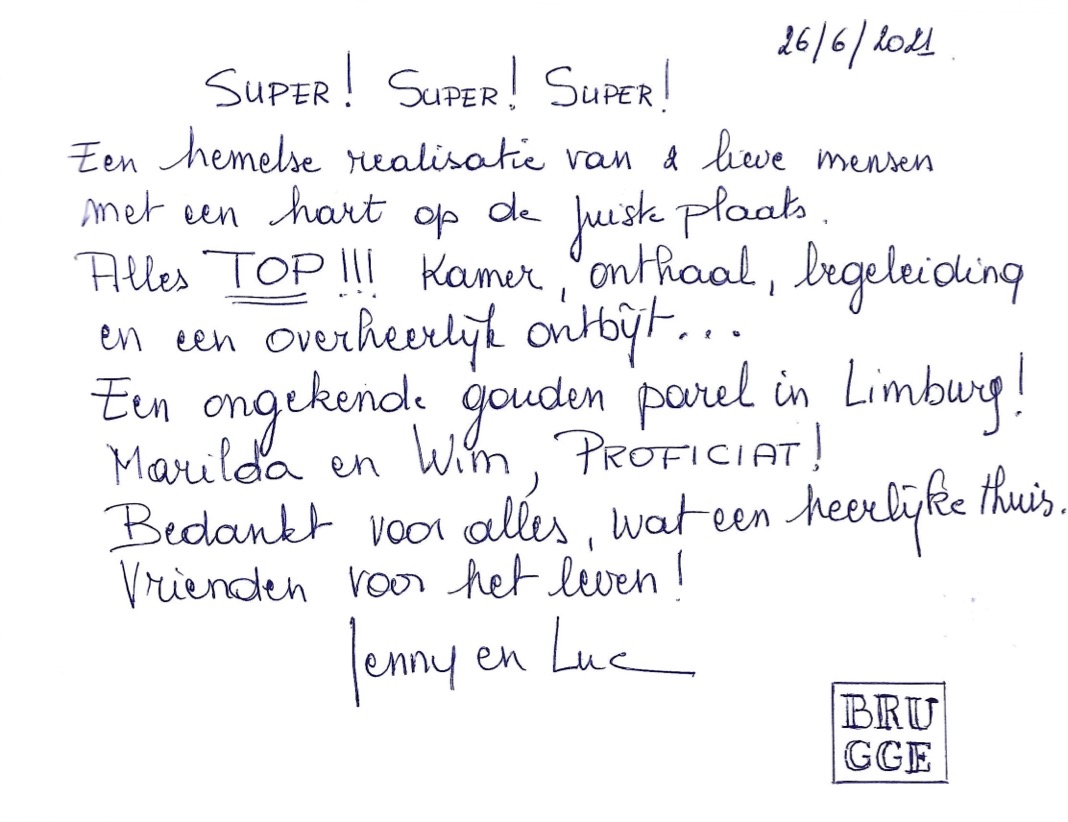 26/6/2021.
SUPER! SUPER! SUPER!
Een hemelse realisatie van 2 lieve mensen
met een hart op de juiste plaats.
Alles TOP!!! Kamer, onthaal, begeleiding
en een overheerlijk ontbijt...
Een ongekende gouden parel in Limburg!
Marilda en Wim, PROFICIAT!
Bedankt voor alles, wat een heerlijke thuis.
Vrienden voor het leven!
Jenny en Luc
BRU
GGE